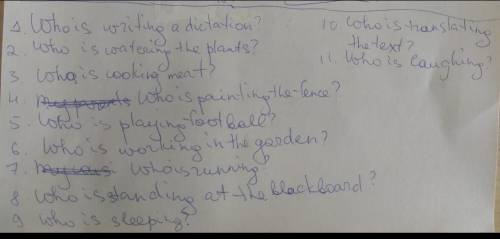 1. Who is writing a dictation?
2. Who is watering the plants?
3. Who is cooking meat?
4. Who is painting the fence?
5. Who is playing football?
6. Who is working in the garden?
7. Who is running?
8 Who is standing at the blackboard?
9 Who is sleeping?
10. Who is translating
the text?
11. Who is laughing?